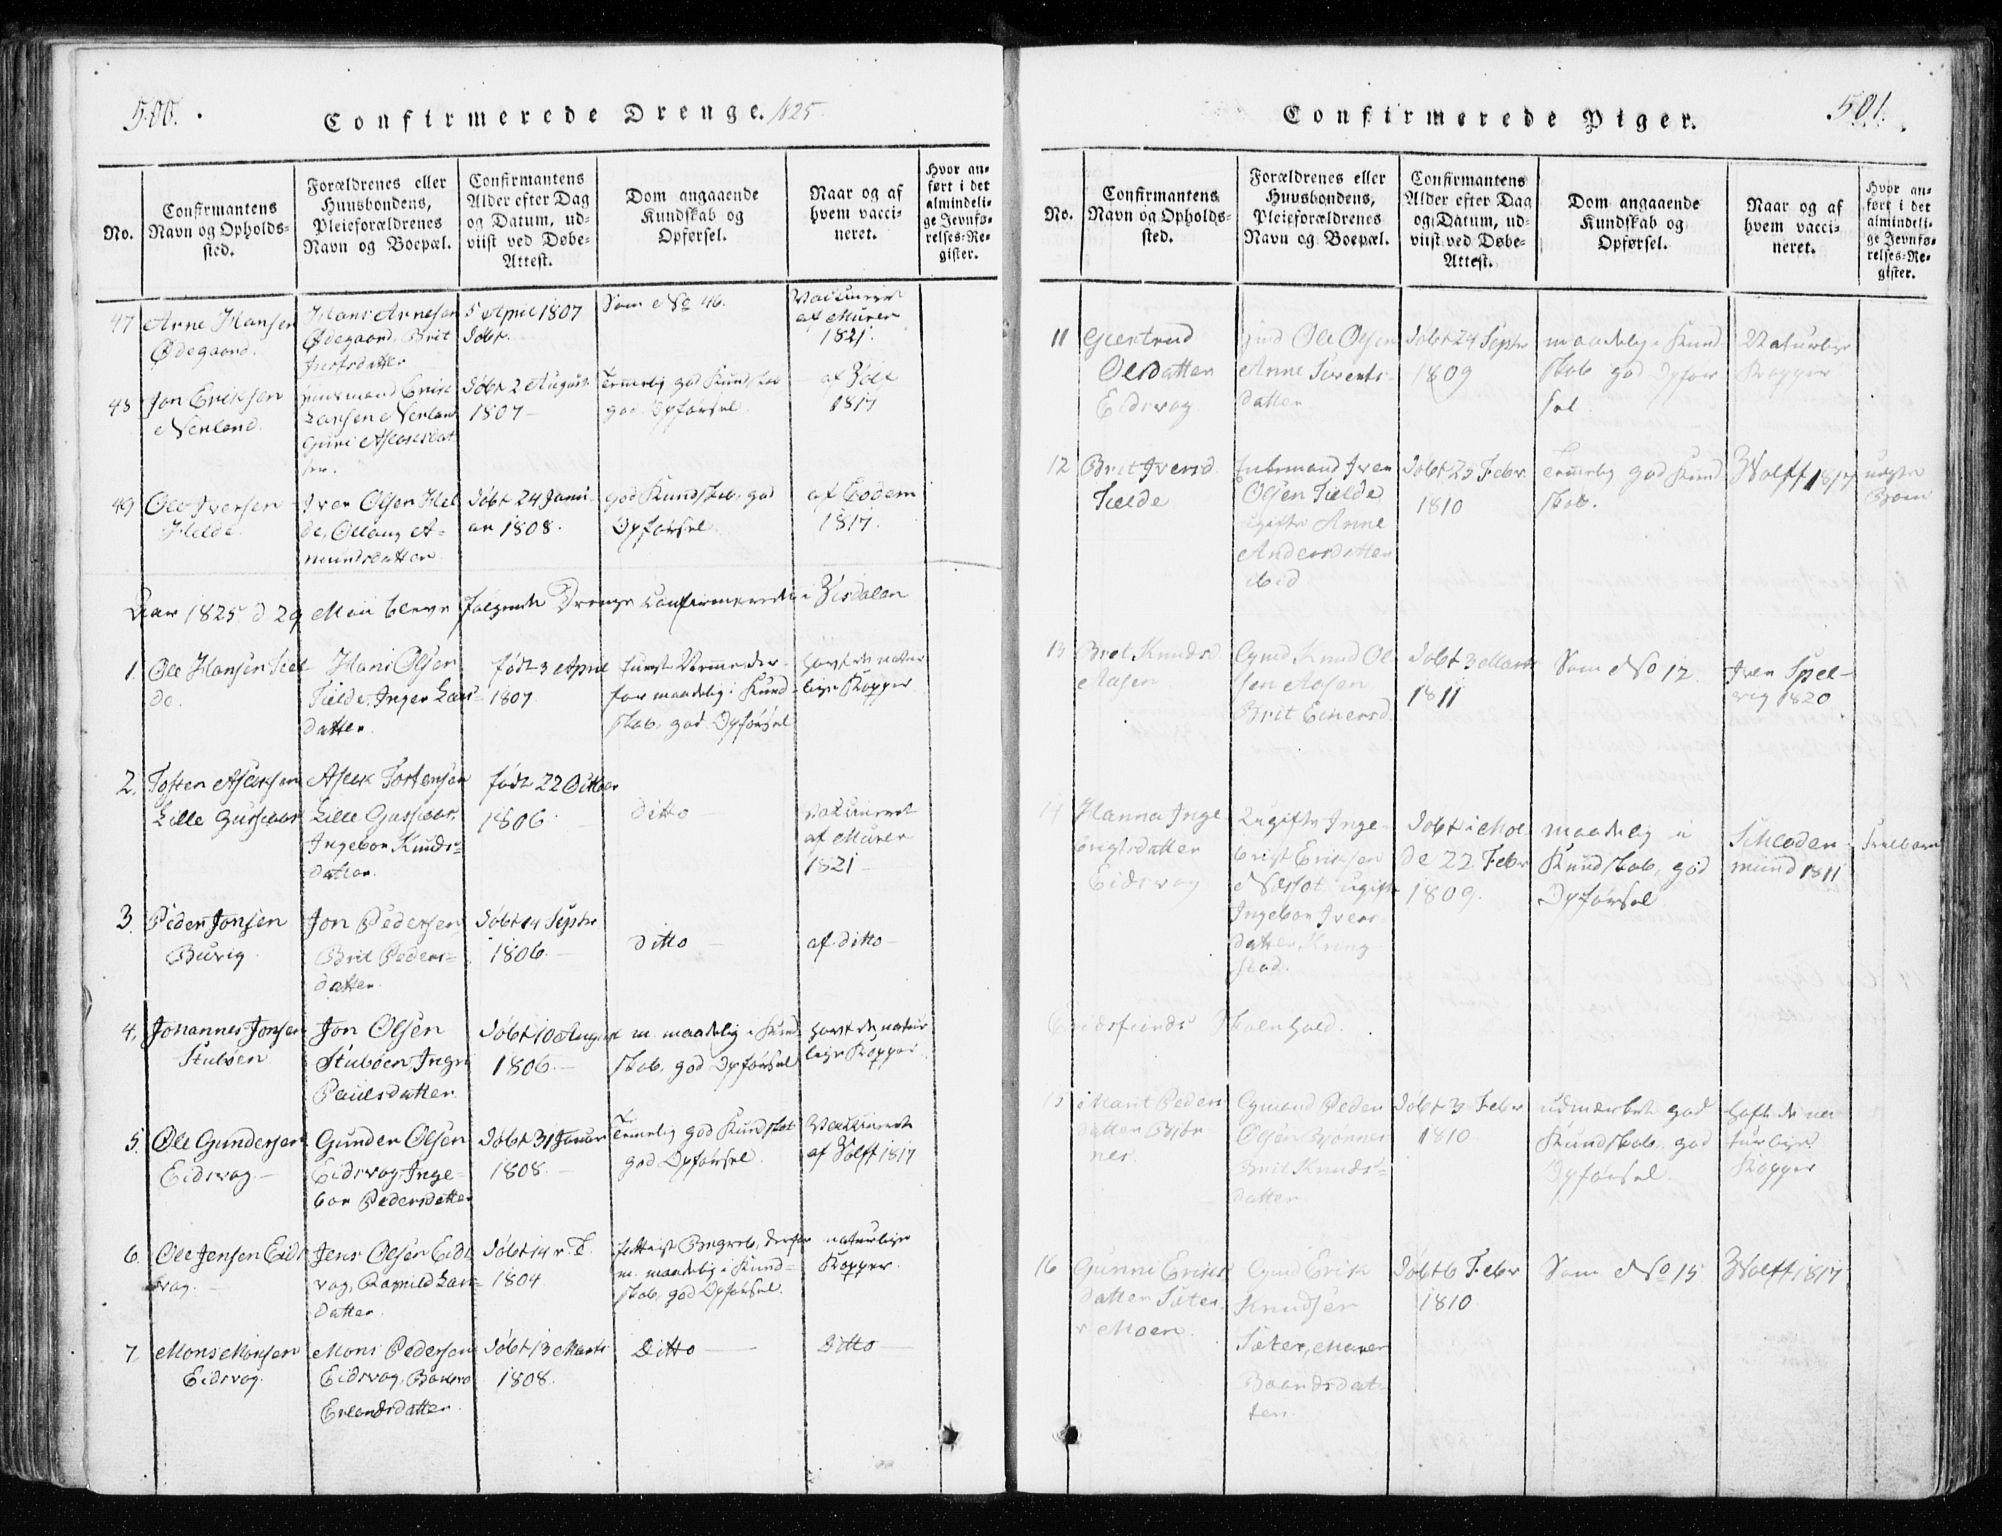 500.
Confirmerede Drenge. 1825.
No.
Confirmantens
Navn og Opholds-
sted.
Forældrenes eller
Huusbondens,
Pleieforældrenes
Navn og Boepæl.
Confirmantens
Alder efter Dag
og Datum, ud-
viist ved Døbe-
Attest.
Dom angaaende
Kundskab og
Opførsel.
Naar og af
hvem vacci-
neret.
Hvor an-
ført i det
almindeli-
ge Jevnfø-
relses-Re-
gister.
47
Arne Hansen
Ødegaard.
Hans Arnesen
Ødegaard, Brit
datter
5 April 1807
døbt.
Som No 46.
Vaccineret
af Murer
1821.
48
Jon Eriksen
Nerland.
Huusmand Erik
Larsen Nerland
Guri Aslaksdat
ter.
døbt 2 August
1807 -
Temelig god Kundskab
god Opførsel.
af Wolf
1817
49
Ole Iversen
Helde.
Iver Olsen Hel
de, Ollaug A-
mundsdatter
døbt 24 Janu
ar 1808.
god Kundskab, god
Opførsel.
af Eodem
1817.
Aar 1825 d 29 Maii bleve følgende Drenge confirmerede i Visdalen
1.
Ole Hansen Tiel
de.
Hans Olsen
Tielde, Inger Lars
datter
født 3 April
1807.
for maadelig i Kund
skab, god Opførsel
havt de natur
lige Kopper
2.
Tosten Aslaksen
Lille Gusiaas
Aslak Tostensen
Lille Gusiaas,
Ingebor Knuds-
datter.
født 22 October
1806. -
ditto -
Vaccineret
af Murer
1821 -
3.
Peder Jonsen
Buvig.
Jon Pedersen
Brit Peders-
datter.
døbt 14 Septr
1806. -
ditto -
af ditto -
4.
Johannes Jonsen
Stubøen
Jon Olsen
Stubøen Ingri
Paulsdatter
døbt 10 August
1806. -
m. maadelig i Kund
skab, god Opførsel
havt de natur
lige Kopper.
5.
Ole Gundersen
Eidsvag. -
Gunder Olsen
Eidsvag, Inge-
bor Pedersdatter
døbt 31 Januar
1808. -
Temelig god Kundskab
god Opførsel.
Vaccineret
af Wolff 1817
6.
Ole Jensen Eids
vag. -
Jens Olsen Eids
vag, Ragnild Lars-
datter
døbt 14
1804.
Begreb, derfor
m. maadelig i Kund-
skab, god Opførsel.
naturlige
Kopper.
7.
Mons Monsen
Eidsvag.
Mons Pedersen
Eidsvag,
Erlandsdatter.
døbt 13 Marts
1808.
Ditto -
Ditto -
501.
Confirmerede Piger.
No.
Confirmantens
Navn og Opholds-
sted.
Forældrenes eller
Huusbondens,
Pleieforældrenes
Navn og Boepæl.
Confirmantens
Alder efter Dag
og Datum, ud-
viist ved Døbe-
Attest.
Dom angaaende
Kundskab og
Opførsel.
Naar og af
hvem vacci-
neret.
Hvor an-
ført i det
almindeli-
ge Jevnfø-
relses-Re-
gister.
11
Giertrud
Olsdatter
Eidsvag
Ole Olsen
Anne Siverts-
datter
døbt 24 Septr
1809
maadelig i Kund
skab god Opfør
sel
Naturlige
Kopper
12
Brit Iversd.
Tielde
Iver
Olsen Tielde
ugifte Anne
Andersdatter
ibid
døbt 25 Febr
1810
Temelig god Kund
skab.
Wolff 1817
uægte
Barn
13
Bret Knudsd
Aasen
Gmd Knud Ol
sen Aasen
Brit Einersd.
døbt 3 Marts
1811
Som No 12.
Iver Spel-
vig 1820
14
Hanna Inge
brigtsdatter
Eidsvag
Ugifte Inge-
brigt Eriksen
ugifte
Ingebor Ivers
datter Kring
stad.
døbt i Mol
de 22 Febr
1809.
maadelig i
Kundskab, god
Opførsel
mund 1811
15
Marit Peders
datter Bjør
nes.
Gmand Peder
Olsen Bjørnes
Brit Knuds-
datter
døbt 3 Febr
1810.
udmærket god
Kundskab god
Opførsel.
haft de na-
turlige
Kopper
16
Gunni Eriks
datter Sæter
Moen.
Gmd Erik
Knudsen
Sæter, Maren
Baardsdat-
ter.
døbt 6 Febr
1810.
Som No 15
Wolff 1817